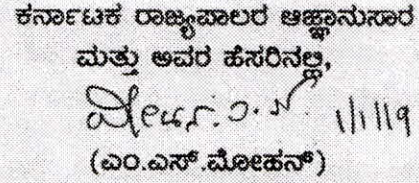 ಕರ್ನಾಟಕ ರಾಜ್ಯಪಾಲರ ಆಜ್ಞಾನುಸಾರ
ಮತ್ತು ಅವರ ಹೆಸರಿನಲ್ಲಿ,
1/1/19
(ಎಂ.ಎಸ್.ಮೋಹನ್)